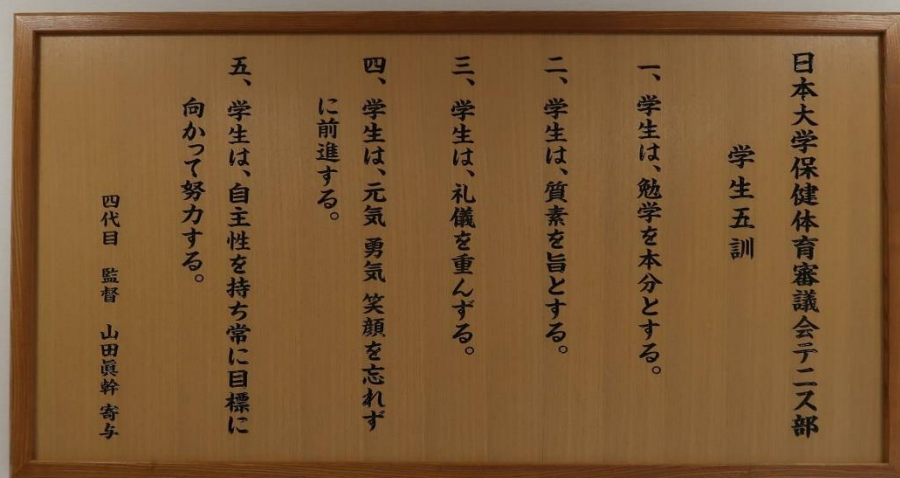 日本大学保健体育審議会テニス部
学生五訓
一、学生は、勉学を本分とする。
二、学生は、質素を旨とする。
三、学生は、礼儀を重んずる。
四、学生は、元気 勇気 笑顔を忘れず
に前進する。
五、学生は、自主性を持ち常に目標に
向かって努力する。
四代目 監督 山田眞幹 寄与